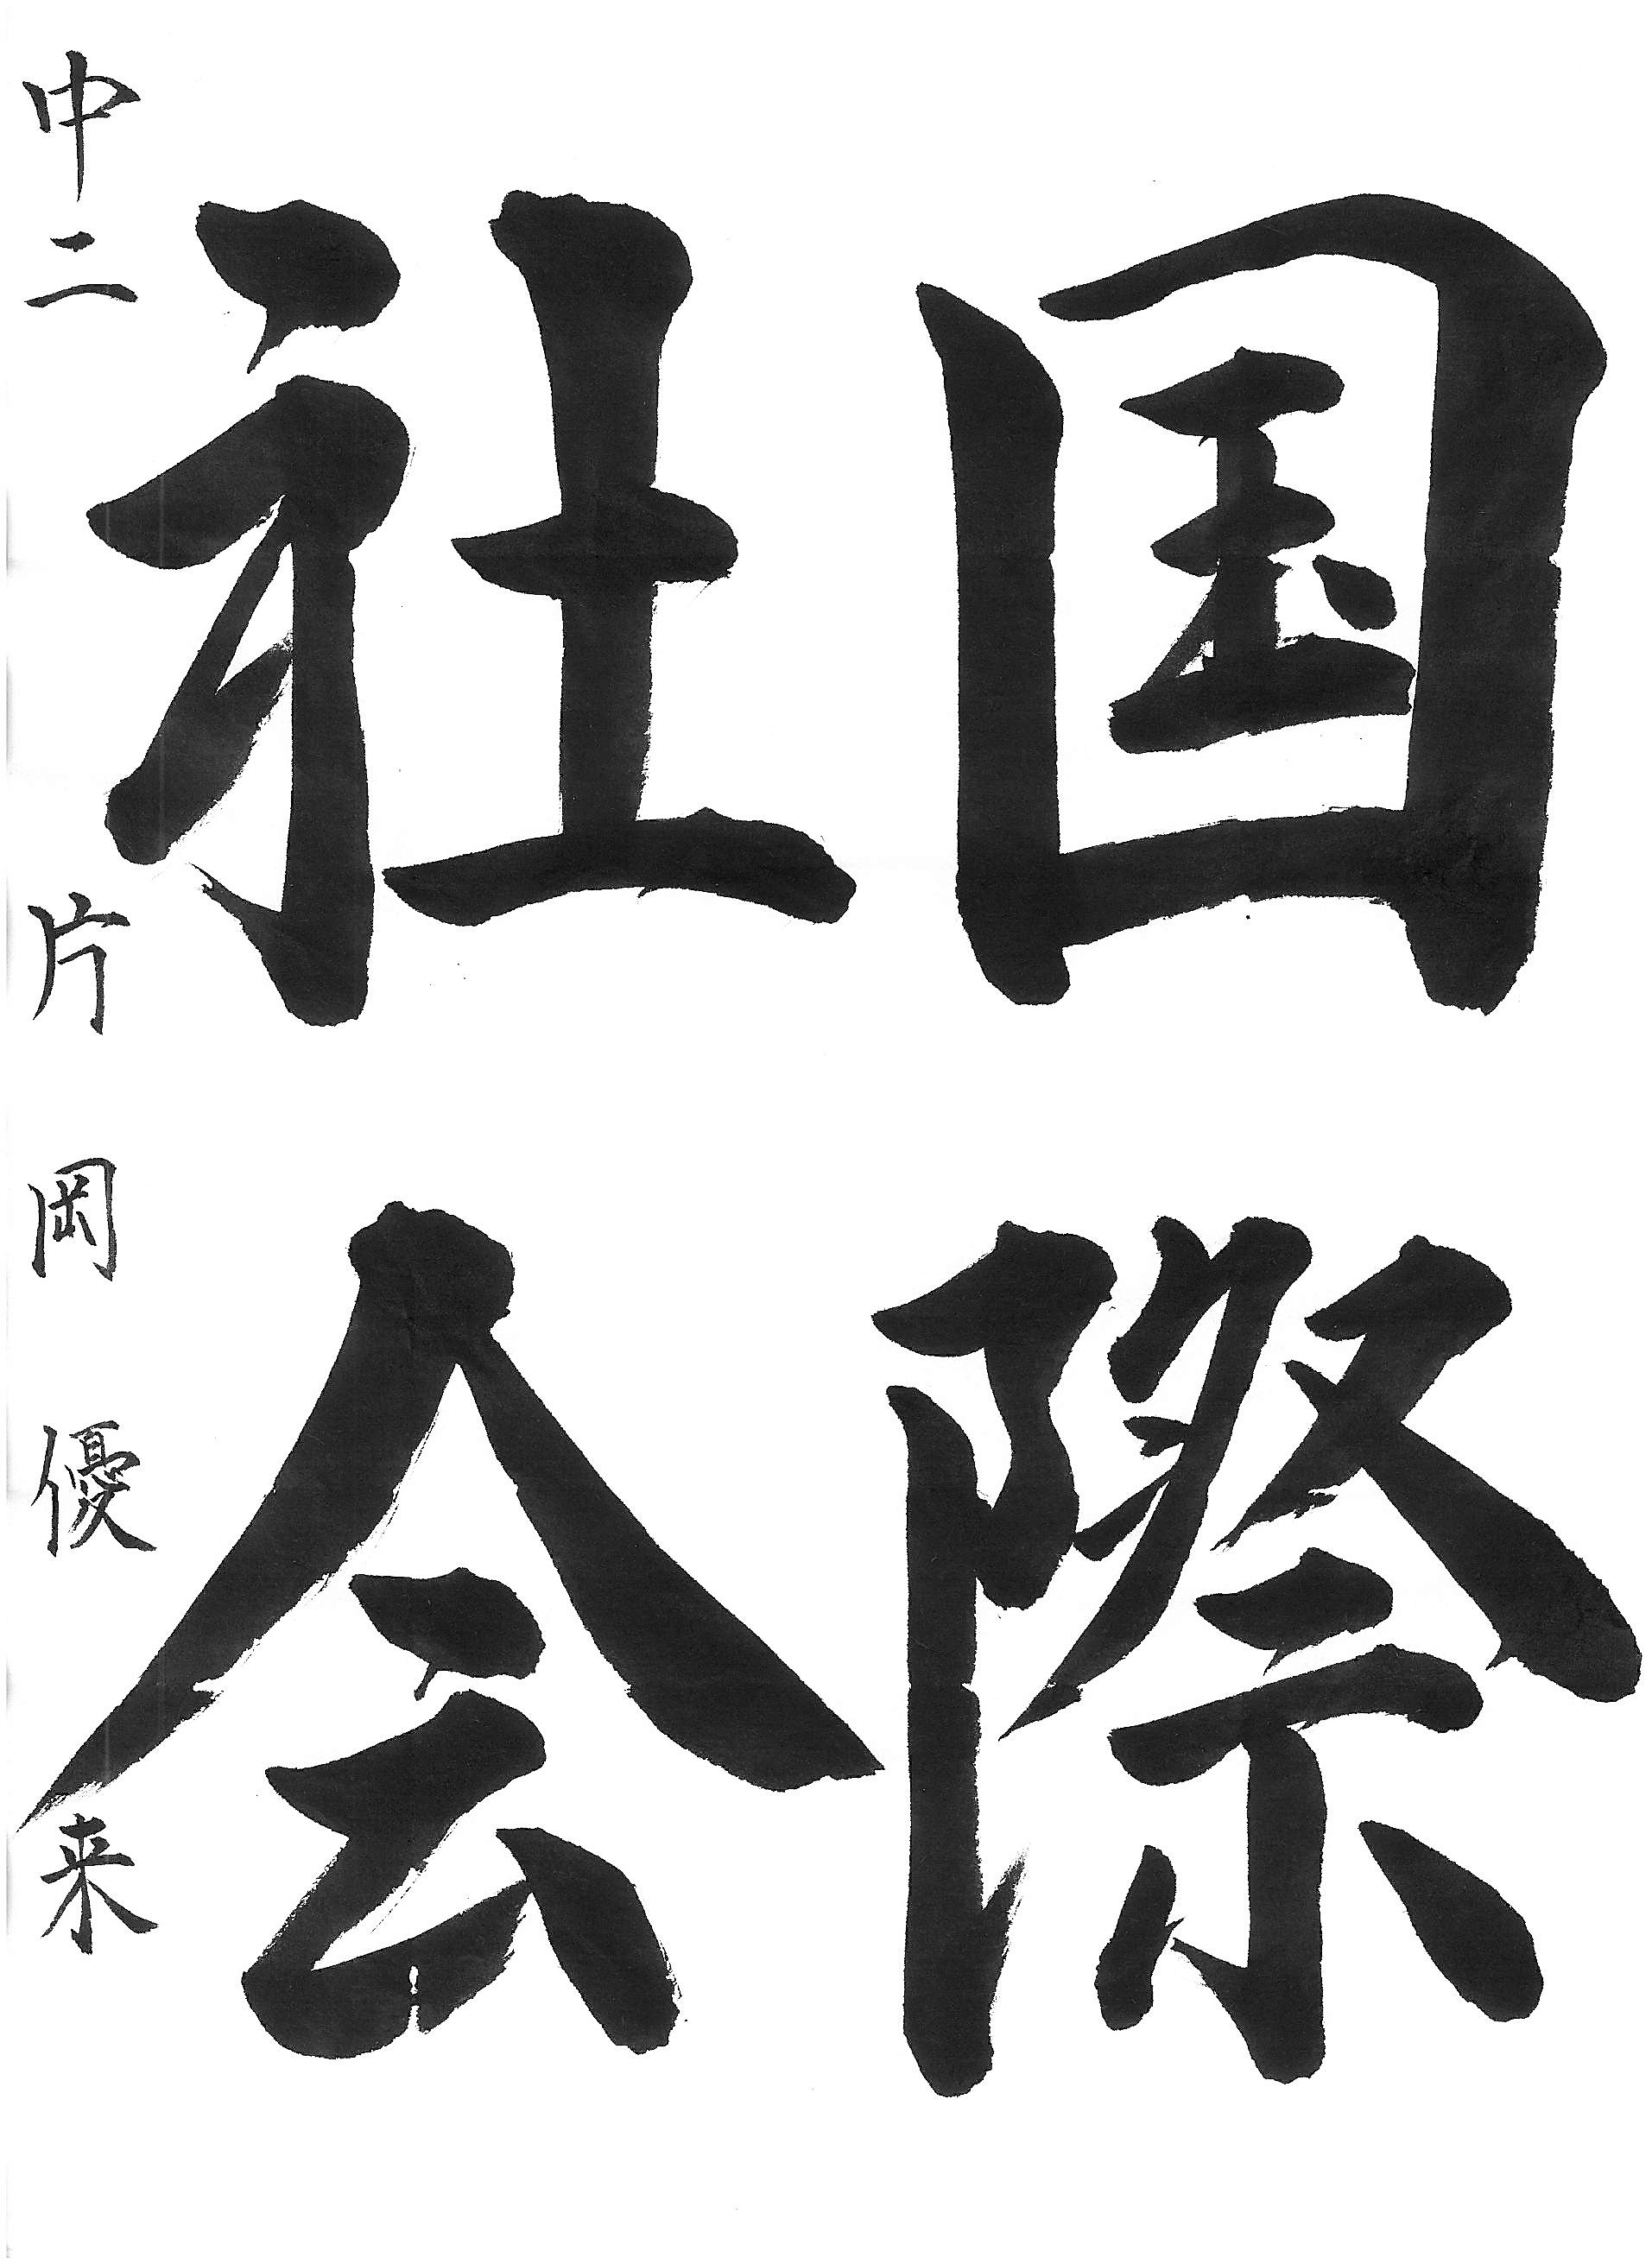 国際
社会
中二 片岡優来